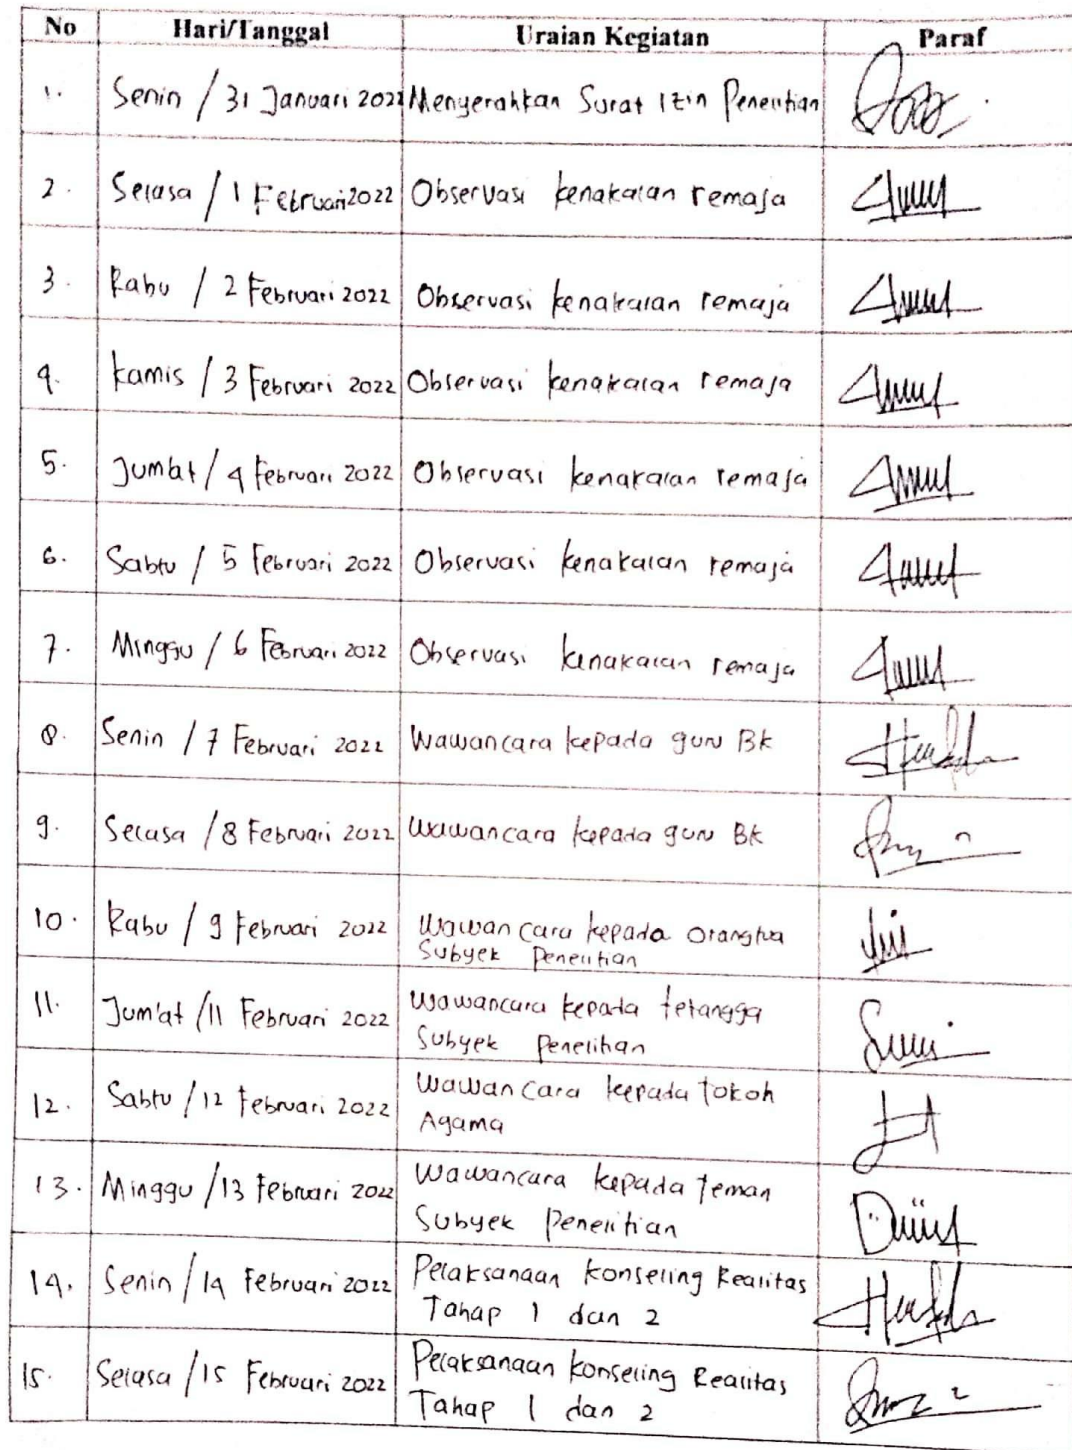 No Hari/Tanggal Uraian Kegiatan Paraf
1. Senin / 31 Januari 2022 Menyerahkan Surat Izin Penelitian
2. Selasa / 1 Februari 2022 Observasi kenakalan remaja
3. Rabu / 2 Februari 2022 Observasi kenakalan remaja
4. Kamis / 3 Februari 2022 Observasi kenakalan remaja
5. Jum'at / 4 Februari 2022 Observasi kenakalan remaja
6. Sabtu / 5 Februari 2022 Observasi kenakalan remaja
7. Minggu / 6 Februari 2022 Observasi kenakalan remaja
8. Senin / 7 Februari 2022 Wawancara kepada guru BK
9. Selasa / 8 Februari 2022 Wawancara kepada guru BK
10. Rabu / 9 Februari 2022 Wawancara kepada orangtua
Subyek Penelitian
11. Jum'at / 11 Februari 2022 Wawancara kepada tetangga
Subyek Penelitian
12. Sabtu / 12 Februari 2022 Wawancara kepada tokoh
Agama
13. Minggu / 13 Februari 2022 Wawancara kepada teman
Subyek Penelitian
14. Senin / 14 Februari 2022 Pelaksanaan konseling Realitas
Tahap 1 dan 2
15. Selasa / 15 Februari 2022 Pelaksanaan konseling Realitas
Tahap 1 dan 2